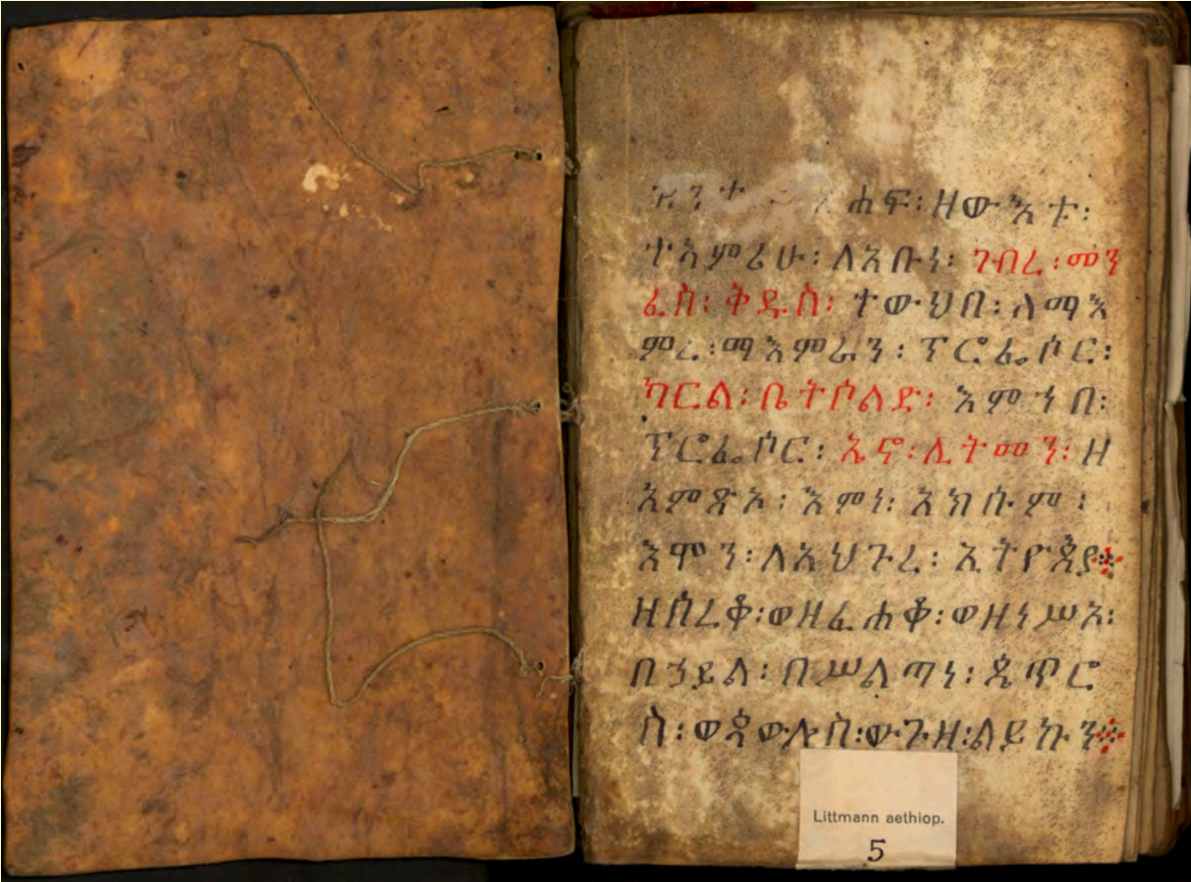 ዛቲ መጽሐፍ፡ዘውእቱ፡
ተአምሪሁ፡ለአቡነ፡ ገብረ፡መን
ፈስ፡ ቅዱስ፡ ተውህበ፡ለማእ
ምረ፡ማእምራን፡ ፕሮፌሶር፡
ካርል፡ ቤትሶልድ፡ እምኀበ፡
ፕሮፌሶር፡ ኤኖ፡ሊትመን፡ ዘ
አምጽኦ፡ እምነ፡ አክሱም፡
እሞን፡ለአህጉረ፡ ኢትዮጵያ፨
ዘሰረቆ፡ወዘፈሐቆ፡ወዘነሥኦ፡
በኃይል፡ በሥልጣነ፡ ጴጥሮ
ስ፡ ወጳውሎስ፡ውጉዘ፡ለይኩን፨
Littmann aethiop.
5